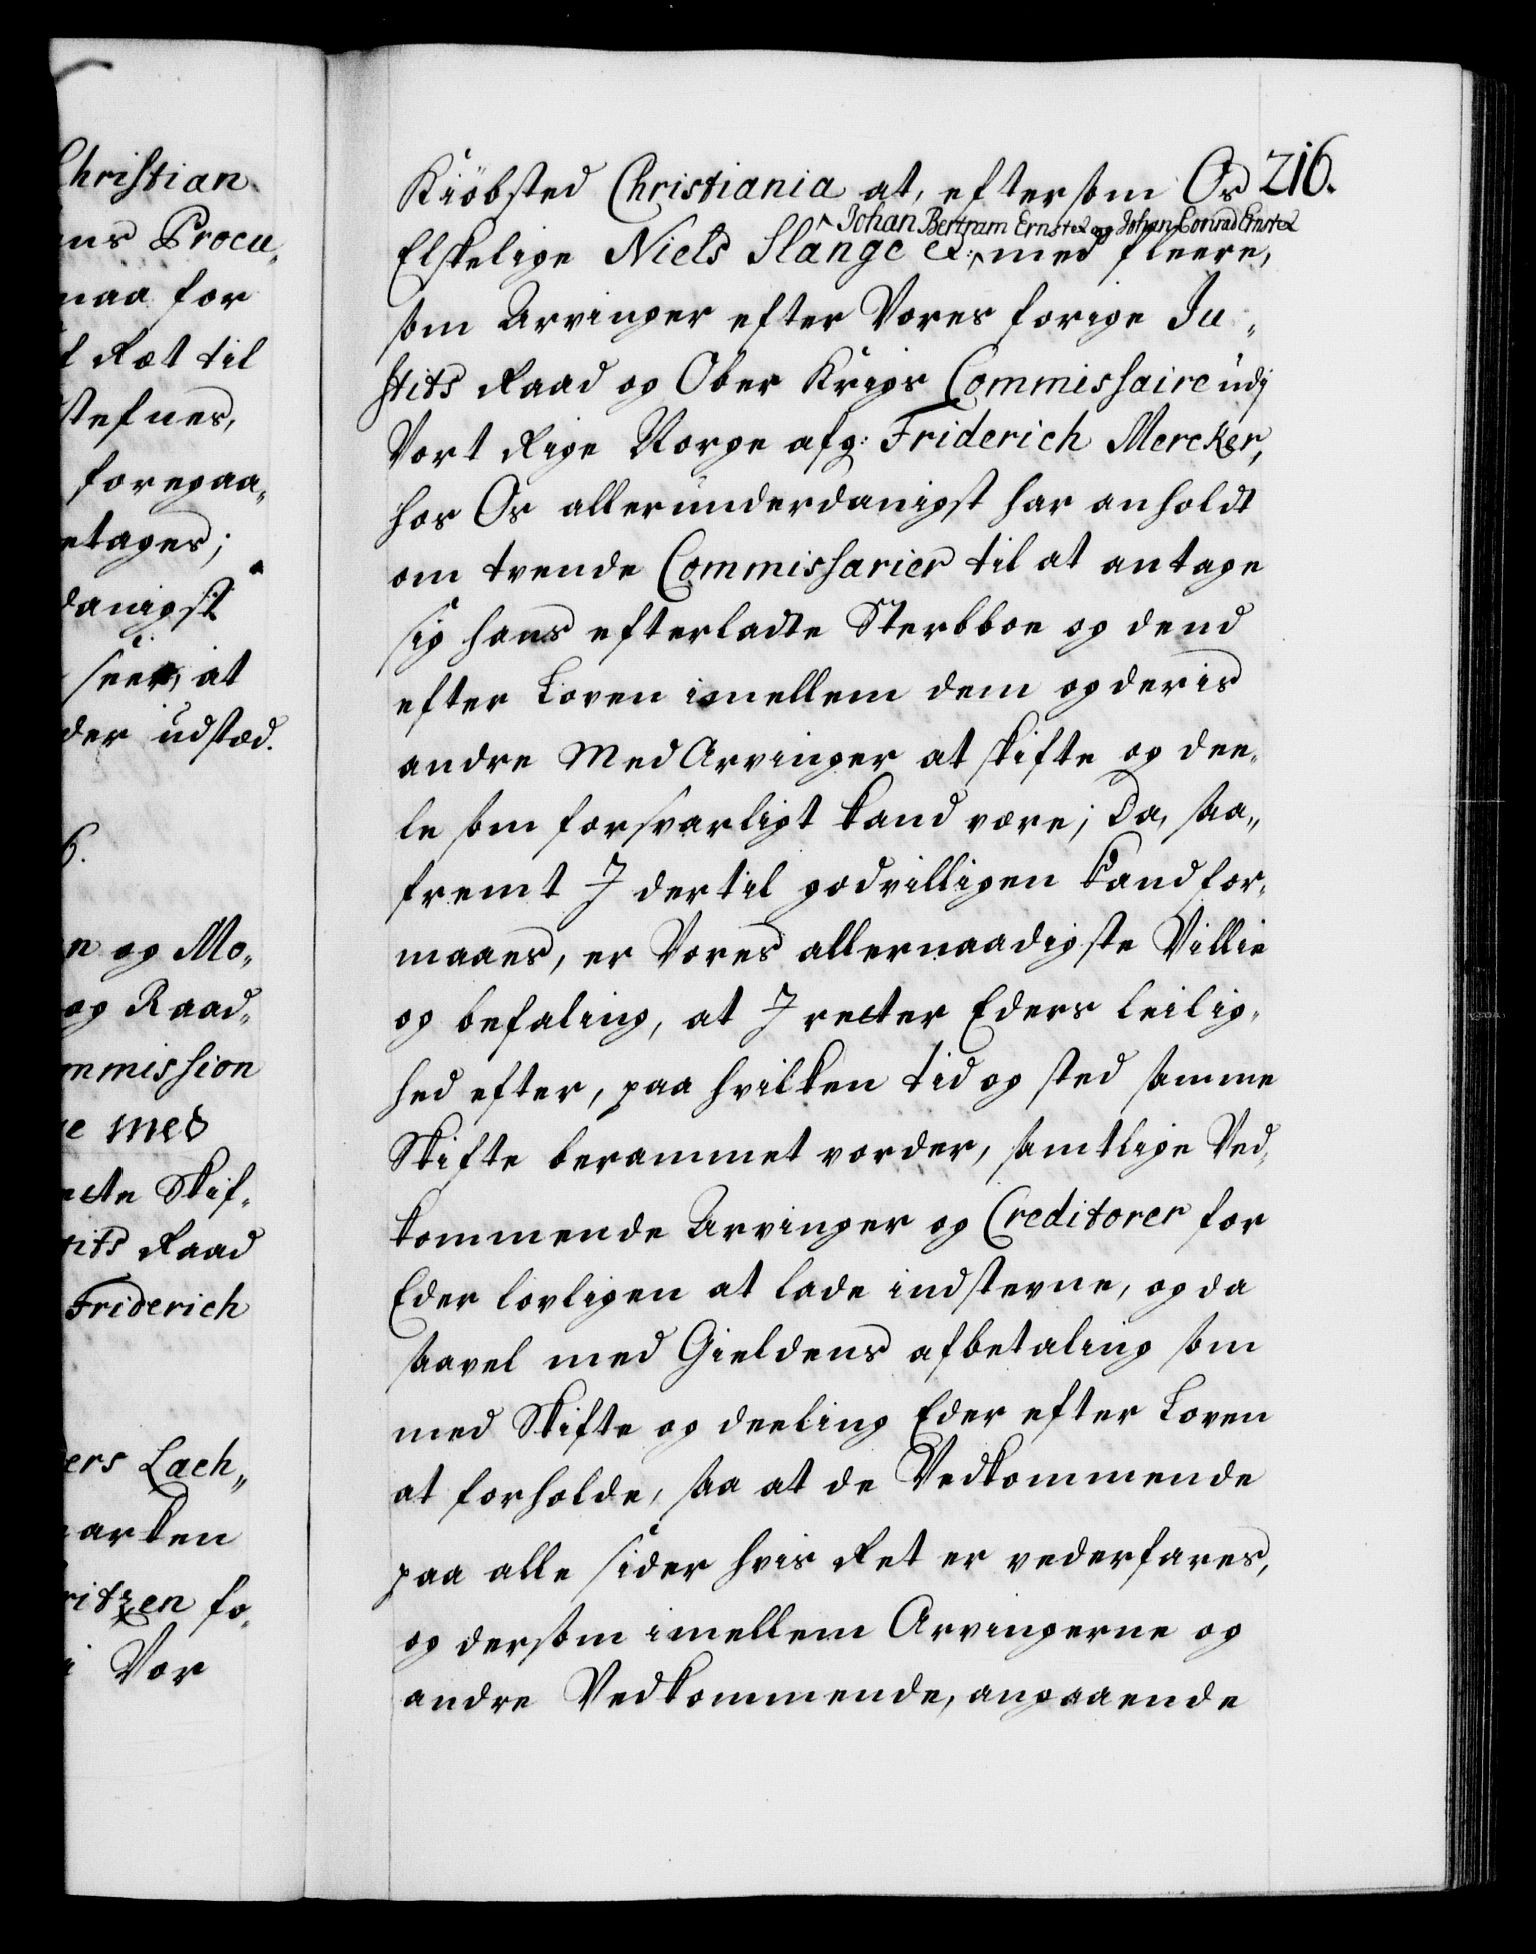 Christian
ns Procu-
maa for
l Ræt til
stefnes,
foregaa-
etages;
danigst
seer, at
der udstæd.
6.
n og Mo-
og Raad-
mmission
e med
ecte Skif-
tits Raad
Friderich
ders Lach-
arken
ritzen fo-
i Vor
216.
Kiöbsted Christiania at, eftersom Os
^ Johan Bertram Ernst etc og Johan Conrad Ernst etc
Elskelige Niels Slange etc: ^ med fleere,
som Arvinger efter Vores forige Ju-
stits Raad og Ober Krigs Commissaire udj
Vort Rige Norge afg: Friderich Mercker,
hos Os allerunderdanigst har anholdt
om tvende Commissarier til at antage
sig hans efterladte Sterbboe og dend
efter Loven imellem dem og deris
andre Med Arvinger at skifte og dee-
le som forsvarligt kand være; Da, saa-
fremt I dertil godvilligen kand for-
maaes, er Vores allernaadigste Villie
og befaling, at I recter Eders leilig-
hed efter, paa hvilken tid og sted samme
Skifte berammet vorder, samtlige Ved-
kommende Arvinger og Creditorer for
Eder lovligen at lade indstevne, og da
saavel med Gieldens afbetaling som
med Skifte og deeling Eder efter Loven
at forholde, saa at de Vedkommende
paa alle sider hvis Ret er vederfares,
og dersom imellem Arvingerne og
andre Vedkommende, angaaende